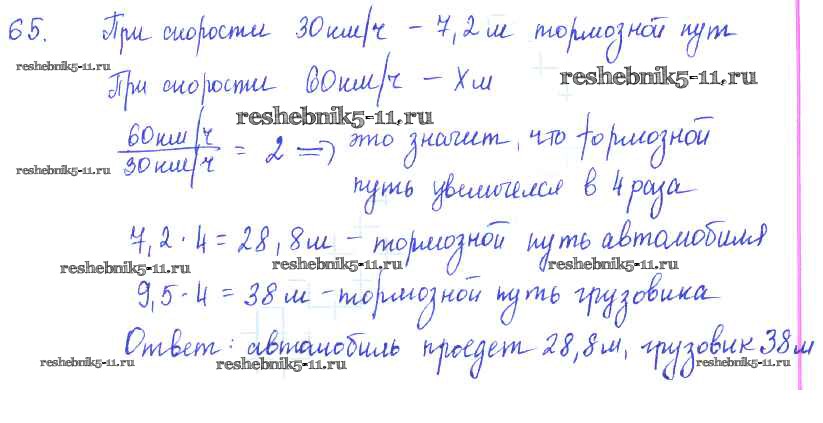 65. При скорости 30км/ч – 7,2м тормозной путь
reshebnik5-11.ru
При скорости 60км/ч – Хм
reshebnik5-11.ru
reshebnik5-11.ru
60км/ч / 30км/ч = 2 => это значит, что тормозной
reshebnik5-11.ru
путь увеличился в 4 раза
7,2 · 4 = 28,8м – тормозной путь автомобиля
reshebnik5-11.ru reshebnik5-11.ru reshebnik5-11.ru
9,5 · 4 = 38м – тормозной путь грузовика
Ответ: автомобиль проедет 28,8м, грузовик 38м
reshebnik5-11.ru reshebnik5-11.ru reshebnik5-11.ru